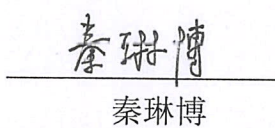 秦琳博
秦琳博